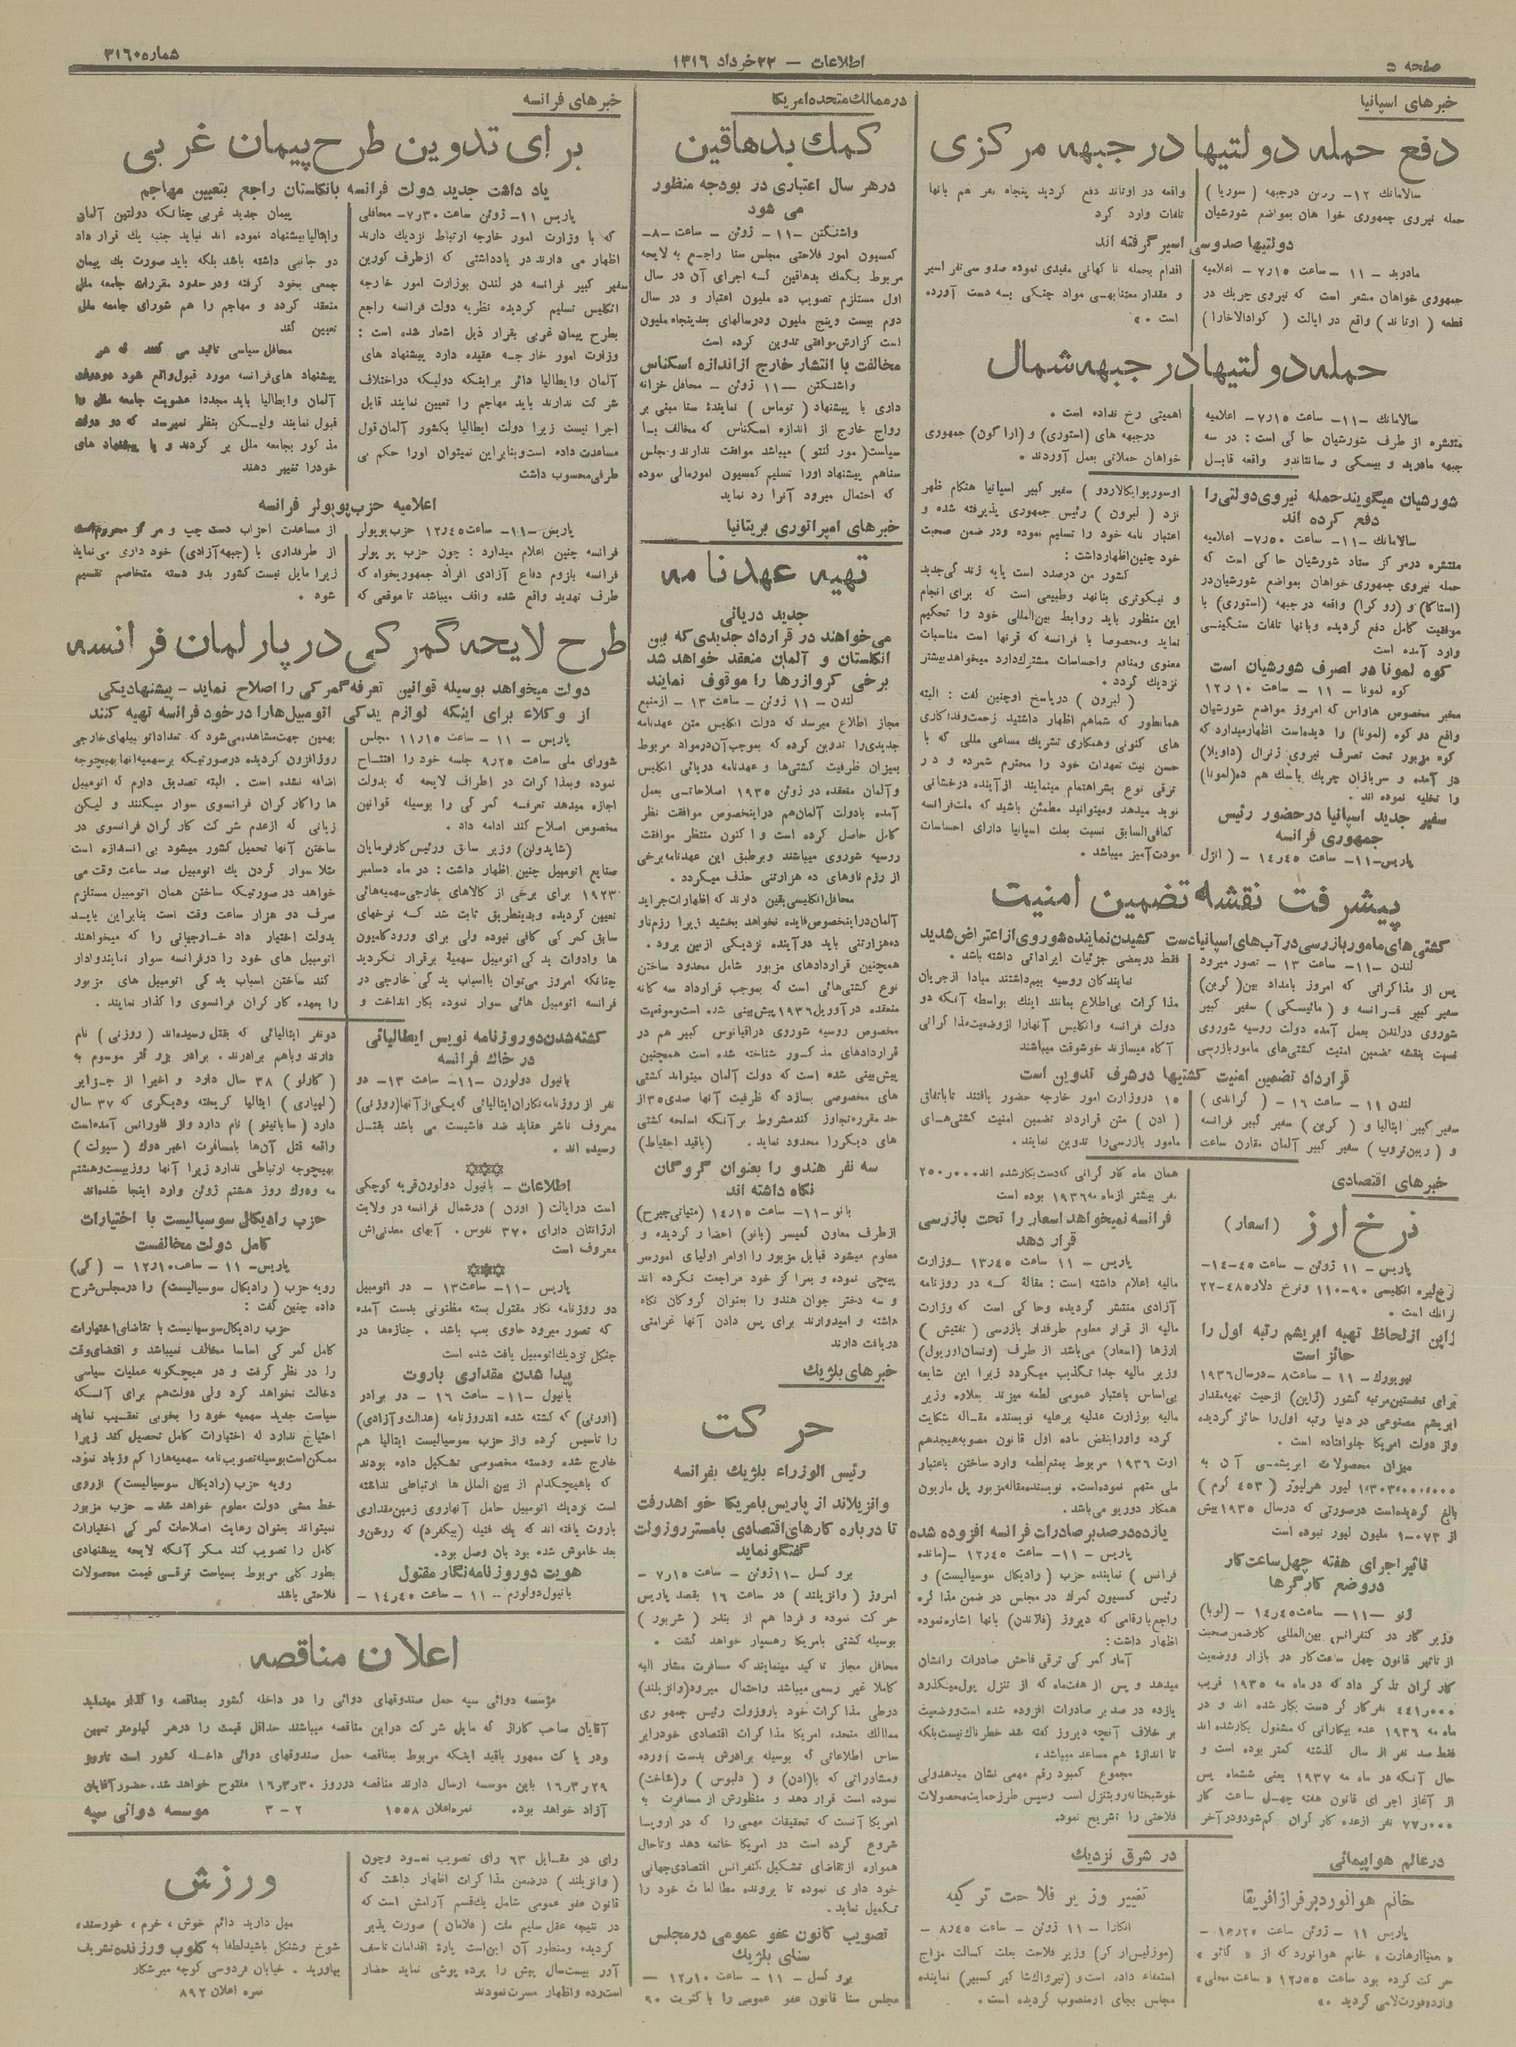 صفحه ۵
اطلاعات – ۲۲ خرداد ۱۳۱۶
شماره ۳۱۶۰
خبرهای اسپانیا
دفع حمله دولتیها در جبهه مرکزی
حمله نیروی جمهوری خواهان بمواضع شورشیان
واقعه در اوتاند دفع کردید پنجاه نفر هم بانها
تلفات وارد کرد
دولتیها صدوسی اسیر گرفته اند
مادرید – ۱۱ – ساعت ۷٫۱۵ – اعلامیه
جمهوری خواهان مشعر است که نیروی چریک در
قطعه ( اوتاند ) واقع در ایالت ( کوادالاخارا )
اقدام بحمله ناکهانی مفیدی نموده صدوسی نفر اسیر
و مقدار معتنابهی مواد جنگی بدست آورده
است »
حمله دولتیها در جبهه شمال
سالامانک –۱۱– ساعت ۷٫۱۵ – اعلامیه
منتشره از طرف شورشیان حاکی است : در سه
جبهه مادرید و بیسکی و سانتاندو واقعه قابل
اهمیتی رخ نداده است .
درجبهه های (استوری) و (اراگون) جمهوری
خواهان حملاتی بعمل آوردند .
شورشیان میگویند حمله نیروی دولتی را
دفع کرده اند
سالامانک –۱۱– ساعت ۷٫۵۰ – اعلامیه
منتشره درمرکز ستاد شورشیان حاکی است که
حمله نیروی جمهوری خواهان بمواضع شورشیان در
(استاکا) و (روکرا) واقعه در جبهه (استوری) با
موفقیت کامل دفع گردیده وبانها تلفات سنگینی
وارد آمده است
کوه لمونا در تصرف شورشیان است
کوه لمونا – ۱۱ – ساعت ۱۲٫۱۰
مخبر مخصوص هاواس که امروز مواضع شورشیان
واقع در کوه (لمونا) را دیده‌است اظهارمیدارد که
کوه مزبور تحت تصرف نیروی ژنرال (داویلا)
در آمده و سربازان چریک باسک هم ده (لمونا)
را تخلیه نموده اند .
سفیر جدید اسپانیا درحضور رئیس
جمهوری فرانسه
پاریس –۱۱– ساعت ۱۴٫۴۵ – ( انژل
اوسوریوایکالاردو ) سفیر کبیر اسپانیا هنکام ظهر
نزد ( لبرون ) رئیس جمهوری پذیرفته شده و
اعتبار نامه خود را تسلیم نموده ودر ضمن صحبت
خود چنین اظهارداشت :
کشور من درصدد است پایه زندگی جدید
و نیکوتری بنانهد وطبیعی است که برای انجام
این منظور باید روابط بین‌المللی خود را تحکیم
نماید ومخصوصا با فرانسه که قرنها است مناسبات
معنوی ومنافع واحساسات مشترک دارد میخواهد بیشتر
نزدیک گردد .
( لبرون ) درپاسخ اوچنین گفت : البته
همانطور که شماهم اظهار داشتید زحمت وفداکاری
های کنونی وهمکاری تشریک مساعی مللی که با
حسن نیت تعهدات خود را محترم شمرده و در
ترقی نوع بشراهتمام مینمایند ازآینده درخشانی
نوید میدهد ومیتوانید مطمئن باشید که ملت فرانسه
کمافی‌السابق نسبت بملت اسپانیا دارای احساسات
مودت‌آمیز میباشد .
پیشرفت نقشه تضمین امنیت
کشتی‌های مامور بازرسی در آب‌های اسپانیا دست کشیدن نماینده شوروی از اعتراض شدید
لندن –۱۱– ساعت ۱۳ – تصور میرود
پس از مذاکراتی که امروز بامداد بین (کربن)
سفیر کبیر فرانسه و ( مائیسکی ) سفیر کبیر
شوروی درلندن بعمل آمده دولت روسیه شوروی
نسبت بنقشه تضمین امنیت کشتی‌های ماموربازرسی
فقط دربعضی جزئیات ایراداتی داشته باشد .
نمایندکان روسیه بیم داشتند مبادا ازجریان
مذاکرات بی‌اطلاع بمانند اینک بواسطه آنکه دو
دولت فرانسه وانکلیس آنهارا ازوضعیت مذاکراتی
آکاه میسازند خوشوقت میباشند
قرارداد تضمین امنیت کشتیها درشرف تدوین است
لندن ۱۱ – ساعت ۱۶ – ( گراندی )
سفیر کبیر ایتالیا و ( کربن ) سفیر کبیر فرانسه
و ( ریبن تروپ ) سفیر کبیر آلمان مقارن ساعت
۱۵ دروزارت امور خارجه حضور یافتند تا باتفاق
( ادن ) متن قرارداد تضمین امنیت کشتی‌های
مامور بازرسی‌را تدوین نمایند .
خبرهای اقتصادی
نرخ ارز ( اسعار )
پاریس – ۱۱ ژوئن – ساعت ۱۴٫۴۵ –
نرخ لیره انگلیسی ۹۰–۱۱۰ ونرخ دلار ۴۸۵–۲۲
فرانک است .
ژاپن ازلحاظ تهیه ابریشم رتبه اول را
حائز است
نیویورک – ۱۱ – ساعت ۸ – درسال ۱۹۳۶
برای نخستین مرتبه کشور (ژاپن) ازحیث تهیه‌مقدار
ابریشم مصنوعی در دنیا رتبه اول‌را حائز گردیده
واز دولت امریکا جلوافتاده است .
میزان محصولات ابریشمی آن به
لیور هرلیور ( ۴۵۳ گرم )
بالغ گردیده‌است درصورتی که درسال ۱۹۳۵ بیش
از ۰۷۳–۱ ملیون لیور نبوده است
تاثیر اجرای هفته چهل ساعت کار
دروضع کارگرها
ژنو –۱۱– ساعت ۱۴٫۴۵ – (لوبا)
وزیر کار در کنفرانس بین‌المللی کارضمن صحبت
از تاثیر قانون چهل ساعت کار در بازار ووضعیت
کارکران تذکر داد که در ماه مه ۱۹۳۵ قریب
۴۴۱٫۰۰۰ نفر کارکر دست بکار شده اند و در
ماه مه ۱۹۳۶ عده بیکارانی که مشغول بکارشده اند
فقط صد نفر از سال گذشته کمتر بوده است و
حال آنکه در ماه مه ۱۹۳۷ یعنی ششماه پس
از آغاز اجرای قانون هفته چهل ساعت کار
۷۷٫۰۰۰ نفر ازعده کارکران کم‌شودودر آخر
همان ماه کارکرانی که دست بکارشده اند ۲۵۰٫۰۰۰
نفر بیشتر ازماه مه ۱۹۳۶ بوده است
فرانسه نمیخواهد اسعار را تحت بازرسی
قرار دهد
پاریس – ۱۱ – ساعت ۱۳٫۴۵ – وزارت
مالیه اعلام داشته است : مقالهٔ که در روزنامه
آزادی منتشر گردیده وحاکی است که وزارت
مالیه از قرار معلوم طرفدار بازرسی ( تفتیش )
ارزها (اسعار) می‌باشد از طرف (ونسان‌اوریول)
وزیر مالیه جدا تکذیب میگردد زیرا این شایعه
بی‌اساس باعتبار عمومی لطمه میزند بعلاوه وزیر
مالیه بوزارت عدلیه برعلیه نویسنده مقاله شکایت
کرده واورابنقض ماده اول قانون مصوبه‌هیجدهم
اوت ۱۹۳۶ مربوط بمنع لطمه وارد ساختن باعتبار
ملی متهم نموده‌است. نویسنده‌مقاله‌مزبور پل ماریون
همکار دوریو می‌باشد.
یازده درصد بر صادرات فرانسه افزوده شده
پاریس – ۱۱– ساعت ۱۲٫۴۵ – (مانده
فرانس ) نماینده حزب ( رادیکال سوسیالیست ) و
رئیس کمسیون گمرک در مجلس در ضمن مذاکره
راجع بارقامی که دیروز (فلاندن) بانها اشاره‌نموده
اظهار داشت :
آمار گمرکی ترقی فاحش صادرات رانشان
میدهد و پس از هفت‌ماه که از تنزل پول‌میگذرد
یازده در صد بر صادرات افزوده شده است‌ووضعیت
بر خلاف آنچه دیروز گفته شد خطرناک نیست‌بلکه
تا اندازهٔ هم مساعد میباشد،
مجموع کمبود رقم مهمی نشان میدهدولی
خوشبختانه‌روبتنزل است وسپس طرز حمایت محصولات
فلاحتی را تشریح نمود.
درعالم هواپیمائی
خانم هوانورد بر فراز افریقا
حرکت کرده بود ساعت ۱۲٫۵۵ « ساعت محلی »
وارد فورت‌لامی گردید »
در شرق نزدیک
تغییر وزیر فلاحت ترکیه
انکارا – ۱۱ ژوئن – ساعت ۸٫۴۵ –
وزیر فلاحت بعلت کسالت مزاج
استعفاء داده است و نماینده
مجلس بجای او منصوب گردیده است .
در ممالک متحده امریکا
کمک بدهاقین
در هر سال اعتباری در بودجه منظور
می شود
واشنگتن –۱۱– ژوئن – ساعت –۸–
کمسیون امور فلاحتی مجلس سنا راجع به لایحه
مربوط بکمک بدهاقین که اجرای آن در سال
اول مستلزم تصویب ده ملیون اعتبار و در سال
دوم بیست وپنج ملیون ودرسالهای بعد پنجاه ملیون
است گزارش موافقی تدوین کرده است
مخالفت با انتشار خارج از اندازه اسکناس
واشنگتن –۱۱ ژوئن – محافل خزانه
داری با پیشنهاد ( توماس ) نمایندهٔ سنا مبنی بر
رواج خارج از اندازه اسکناس که مخالف با
سیاست ( مورکنتو ) میباشد موافقت ندارند و مجلس
سناهم پیشنهاد اورا تسلیم کمسیون امورمالی نموده
که احتمال میرود آنرا رد نماید
خبرهای امپراتوری بریتانیا
تهیه عهدنامه
جدید دریائی
می‌خواهند در قرارداد جدیدی که بین
انگلستان و آلمان منعقد خواهد شد
برخی کروازرها را موقوف نمایند
لندن – ۱۱ ژوئن – ساعت ۱۳ – ازمنبع
مجاز اطلاع میرسد که دولت انکلیس متن عهدنامه
جدیدی‌را تدوین کرده که بموجب آن درمواد مربوط
بمیزان ظرفیت کشتی‌ها و عهدنامه دریائی انکلیس
وآلمان منعقده در ژوئن ۱۹۳۵ اصلاحاتی بعمل
آمده بادولت آلمان‌هم دراینخصوص موافقت نظر
کامل حاصل کرده است واکنون منتظر موافقت
روسیه شوروی میباشند وبرطبق این عهدنامه برخی
از رزم ناوهای ده هزارتنی حذف میگردد .
محافل انکلیسی یقین دارند که اظهارات جراید
آلمان دراینخصوص فایده نخواهد بخشید زیرا رزم ناو
ده‌هزارتنی باید درآینده نزدیکی ازبین برود .
همچنین قراردادهای مزبور شامل محدود ساختن
نوع کشتی‌هائی است که بموجب قرارداد سه کانه
منعقده درآوریل ۱۹۳۶ پیش‌بینی شده است‌وموقعیت
مخصوص روسیه شوروی دراقیانوس کبیر هم در
قراردادهای مذکور شناخته شده است همچنین
پیش‌بینی شده است که دولت آلمان میتواند کشتی
های مخصوصی بسازد که ظرفیت آنها صدی ۳۵ از
حد مقرره تجاوز کند مشروط برآنکه اسلحه کشتی
های دیگررا محدود نماید . (باقید احتیاط)
سه نفر هندو را بعنوان گروگان
نگاه داشته اند
بانو –۱۱– ساعت ۱۴٫۱۵
ازطرف معاون کمیسر (بانو) احضار گردیده و
معلوم میشود قبایل مزبور را اوامر اولیای امورسر
پیچی نموده و بمراکز خود مراجعت نکرده اند
و سه دختر جوان هندو را بعنوان گروکان نکاه
داشته و امیدوارند برای پس دادن آنها غرامتی
دریافت دارند
خبرهای بلژیک
حرکت
رئیس الوزراء بلژیک بفرانسه
وانزیلاند از پاریس بامریکا خواهد رفت
تا درباره کارهای اقتصادی بامستر روزولت
گفتگو نماید
بروکسل –۱۱ژوئن – ساعت ۷٫۱۵ –
امروز ( وانزیلند ) در ساعت ۱۶ بقصد پاریس
حرکت نموده و فردا هم از بندر ( شربور )
بوسیله کشتی بامریکا رهسپار خواهد گشت .
محافل مجاز تاکید مینمایند که مسافرت مشار الیه
کاملا غیر رسمی میباشد واحتمال میرود(وانزیلند)
درطی مذاکرات خود باروزولت رئیس جمهوری
ممالک متحده امریکا مذاکرات اقتصادی خودرابر
ساس اطلاعاتی که بوسیله برادرش بدست آورده
ومشاوراتی که با(ادن) و ( دلبوس ) و(شاخت)
نموده است قرار دهد و منظورش از مسافرت به
امریکا آنست که تحقیقات مهمی را که در اروپا
شروع کرده است در امریکا خاتمه دهد وتاحال
همواره ازتقاضای تشکیل کنفرانس اقتصادی جهانی
خود داری نموده تا پرونده مطالعات خود را
تکمیل نماید.
تصویب قانون عفو عمومی درمجلس
سنای بلژیک
بروکسل – ۱۱ – ساعت ۱۲٫۱۰ –
مجلس سنا قانون عفو عمومی را با کثریت ۹۰
رای در مقابل ۶۳ رای تصویب نمود وچون
( وانزیلند ) درضمن مذاکرات اظهار داشت که
قانون عفو عمومی شامل یکقسم آرامش است که
در نتیجه عقل سلیم ملت ( فلامان ) صورت پذیر
گردیده ومنظور آن این‌است پارهٔ اقدامات تاسف
آور بیست‌سال پیش را پرده پوشی نماید حضار
است‌زده واظهار مسرت نمودند
خبرهای فرانسه
برای تدوین طرح پیمان غربی
یادداشت جدید دولت فرانسه بانگلستان راجع بتعیین مهاجم
پاریس ۱۱– ژوئن ساعت ۷٫۳۰ – محافلی
که با وزارت امور خارجه ارتباط نزدیک دارند
اظهار می دارند در یادداشتی که ازطرف کوربن
سفیر کبیر فرانسه در لندن بوزارت امور خارجه
انکلیس تسلیم گردیده نظریه دولت فرانسه راجع
بطرح پیمان غربی بقرار ذیل اشعار شده است :
وزارت امور خارجه عقیده دارد پیشنهاد های
آلمان وایطالیا دائر براینکه دولیکه دراختلاف
شرکت ندارند باید مهاجم را تعیین نمایند قابل
اجرا نیست زیرا دولت ایطالیا بکشور آلمان قول
مساعدت داده است‌وبنابراین نمیتوان اورا حکم بی
طرفی محسوب داشت
پیمان جدید غربی چنانکه دولتین آلمان
وایطالیا پیشنهاد نموده اند نباید جنبه یک قرارداد
دو جانبی داشته باشد بلکه باید صورت یک پیمان
جمعی بخود گرفته ودر حدود مقررات جامعه ملل
منعقد گردد و مهاجم را هم شورای جامعه ملل
تعیین کند
محافل سیاسی تائید می کنند که هر
پیشنهاد های فرانسه مورد قبول واقع شود دودولت
آلمان وایطالیا باید مجددا عضویت جامعه ملل را
قبول نمایند ولیکن بنظر نمیرسد که دو دولت
مذکور بجامعه ملل بر گردند و یا پیشنهاد های
خودرا تغییر دهند
اعلامیه حزب پوپولر فرانسه
پاریس –۱۱– ساعت ۱۲٫۴۵ حزب پوپولر
فرانسه چنین اعلام میدارد : چون حزب پوپولر
فرانسه بلزوم دفاع آزادی افراد جمهوریخواه که
طرف تهدید واقع شده واقف میباشد تا موقعی که
از مساعدت احزاب دست چپ و مرکز محروم است
از طرفداری با (جبهه‌آزادی) خود داری می‌نماید
زیرا مایل نیست کشور بدو دسته متخاصم تقسیم
شود .
طرح لایحه گمرکی در پارلمان فرانسه
دولت میخواهد بوسیله قوانین تعرفه گمرکی را اصلاح نماید – پیشنهادیکی
از وکلاء برای اینکه لوازم یدکی اتومبیل‌هارا درخود فرانسه تهیه کنند
پاریس – ۱۱ – ساعت ۱۱٫۱۵ مجلس
شورای ملی ساعت ۹٫۲۵ جلسه خود را افتتاح
نموده وبمذاکرات در اطراف لایحه که بدولت
اجازه میدهد تعرفه گمرکی را بوسیله قوانین
مخصوص اصلاح کند ادامه داد .
(شاپدولن) وزیر سابق ورئیس کارفرمایان
صنایع اتومبیل چنین اظهار داشت : در ماه دسامبر
۱۹۲۳ برای برخی از کالاهای خارجی سهمیه‌هائی
تعیین گردیده وبدینطریق ثابت شد که نرخهای
سابق گمرکی کافی نبوده ولی برای ورودکامیون
ها وادوات یدکی اتومبیل سهمیهٔ برقرار نگردید
چنانکه امروز می‌توان بااسباب یدکی خارجی در
فرانسه اتومبیل هائی سوار نموده بکار انداخت و
بهمین جهت مشاهده‌می‌شود که تعداداتوبیلهای خارجی
روزافزون گردیده درصورتیکه برسهمیه‌انها بهیچوجه
اضافه نشده است . البته تصدیق دارم که اتومبیل
هاراکارکران فرانسوی سوار میکنند و لیکن
زیانی که ازعدم شرکت کارکران فرانسوی در
ساختن آنها تحمیل کشور میشود بی‌اندازه است
مثلا سوار کردن یک اتومبیل صد ساعت وقت می
خواهد در صورتیکه ساختن همان اتومبیل مستلزم
صرف دو هزار ساعت وقت است بنابراین باید
بدولت اختیار داد خارجیانی را که میخواهند
اتومبیل های خود را درفرانسه سوار نمایندوادار
کند ساختن اسباب یدکی اتومبیل های مزبور
را بعهده کارکران فرانسوی واگذار نمایند .
کشته شدن دوروزنامه نویس ایطالیائی
در خاک فرانسه
بانیول دولورن –۱۱– ساعت ۱۳– دو
نفر از روزنامه نکاران ایتالیائی که یکی ازآنها(روزنی)
معروف ناشر عقاید ضد فاشیست می باشد بقتل
رسیده اند .
اطلاعات – بانیول دولورن قریه کوچکی
است درایالت ( اورن ) درشمال فرانسه در ولایت
ارژانتان دارای ۳۷۰ نفوس . آبهای معدنی‌اش
معروف است
پاریس –۱۱– ساعت ۱۳ – در اتومبیل
دو روزنامه نکار مقتول بسته مظنونی بدست آمده
که تصور میرود حاوی بمب باشد . جنازه‌ها در
جنکل نزدیک اتومبیل یافت شده است
پیدا شدن مقداری باروت
بانیول –۱۱– ساعت ۱۶ – دو برادر
(اورنی) که کشته شده اندروزنامه (عدالت‌وآزادی)
را تاسیس کرده واز حزب سوسیالیست ایتالیا هم
خارج شده ودسته مخصوصی تشکیل داده بودند
که باهیچکدام از بین الملل ها ارتباطی نداشته
است نزدیک اتومبیل حامل آنهاروی زمین مقداری
باروت یافته اند که یک فتیله (بیکفرد) که روشن‌و
بعد خاموش شده بود بان وصل بود.
هویت دوروزنامه‌نگار مقتول
بانیول دولورم – ۱۱ – ساعت ۱۴٫۴۵ –
دونفر ایتالیائی که بقتل رسیده‌اند ( روزنی ) نام
دارند وباهم برادرند. برادر بزرگتر موسوم به
( کارلو ) ۳۸ سال دارد و اخیرا از جزایر
( لیپاری ) ایتالیا گریخته ودیگری که ۳۷ سال
دارد ( ساباتینو ) نام دارد واز فلورانس آمده‌است
واقعه قتل آن‌ها بامسافرت اخیر دوک ( سپولت )
بهیچوجه ارتباطی ندارد زیرا آنها روز بیست‌وهشتم
مه ودوک روز هشتم ژوئن وارد اینجا شده‌اند
حزب رادیکالی سوسیالیست با اختیارات
کامل دولت مخالفست
پاریس– ۱۱ – ساعت ۱۲٫۱۰ – (کی)
رویه حزب ( رادیکال سوسیالیست) را درمجلس شرح
داده چنین گفت :
حزب رادیکال سوسیالیست با تقاضای اختیارات
کامل گمرکی اساسا مخالف نمیباشد و اقتضای وقت
را در نظر گرفت و در هیچگونه عملیات سیاسی
دخالت نخواهد کرد ولی دولت‌هم برای آنکه
سیاست جدید سهمیه خود را بخوبی تعقیب نماید
احتیاج ندارد که اختیارات کامل تحصیل کند زیرا
ممکن است بوسیله تصویب‌نامه سهمیه‌هارا کم وزیاد نمود.
رویه حزب (رادیکال سوسیالیست) ازروی
خط مشی دولت معلوم خواهد شد – حزب مزبور
نمیتواند بعنوان رعایت اصلاحات گمرکی اختیارات
کامل را تصویب کند مگر آنکه لایحه پیشنهادی
بطور کلی مربوط بسیاست ترقی قیمت محصولات
فلاحتی باشد
اعلان مناقصه
مؤسسه دوائی سپه حمل صندوقهای دوائی را در داخله کشور بمناقصه واگذار مینماید
آقایان صاحب کاراژ که مایل شرکت دراین مناقصه میباشند حداقل قیمت را درهر کیلومتر تعیین
ودر پاکت ممهور باقید اینکه مربوط بمناقصه حمل صندوقهای دوائی داخله کشور است تا روز
۱۶٫۳٫۲۹ باین موسسه ارسال دارند مناقصه درروز ۱۶٫۳٫۳۰ مفتوح خواهد شد. حضور آقایان
آزاد خواهد بود. نمره‌اعلان ۱۵۵۸ ۲ – ۳ موسسه دوائی سپه
ورزش
میل دارید دائم خوش ، خرم ، خورسند ،
شوخ وشنگل باشید لطفا به کلوب ورزنده تشریف
بیاورید . خیابان فردوسی کوچه میرشکار
نمره اعلان ۸۹۲